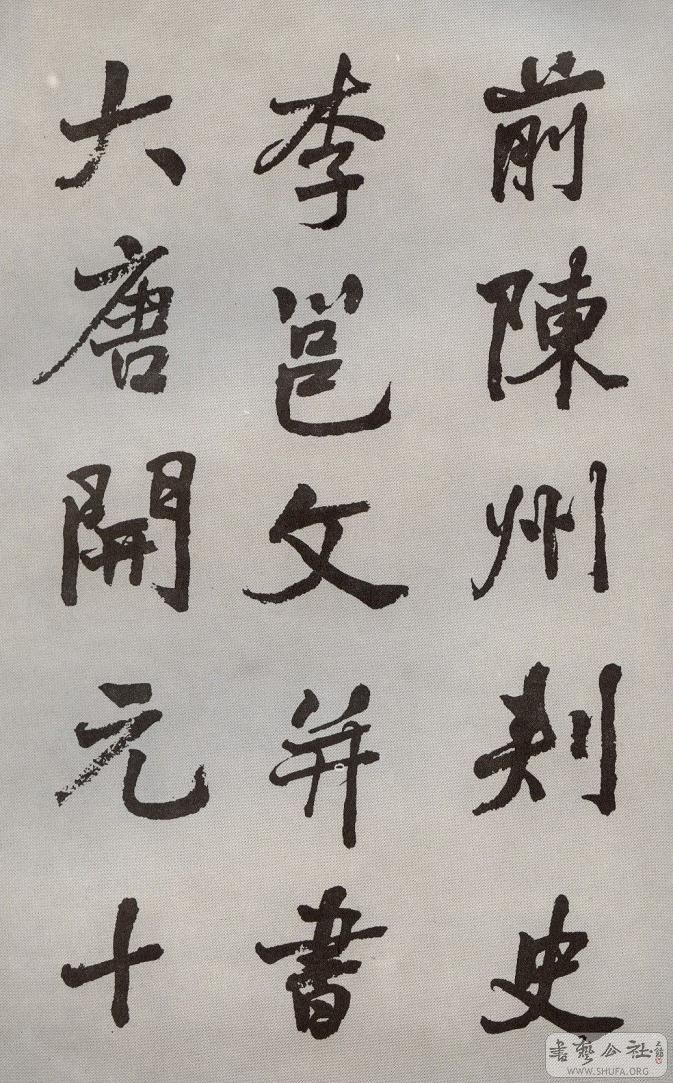 前陳州刺史
李邕文并書
大唐開元十
書藝公社
WWW.SHUFA.ORG